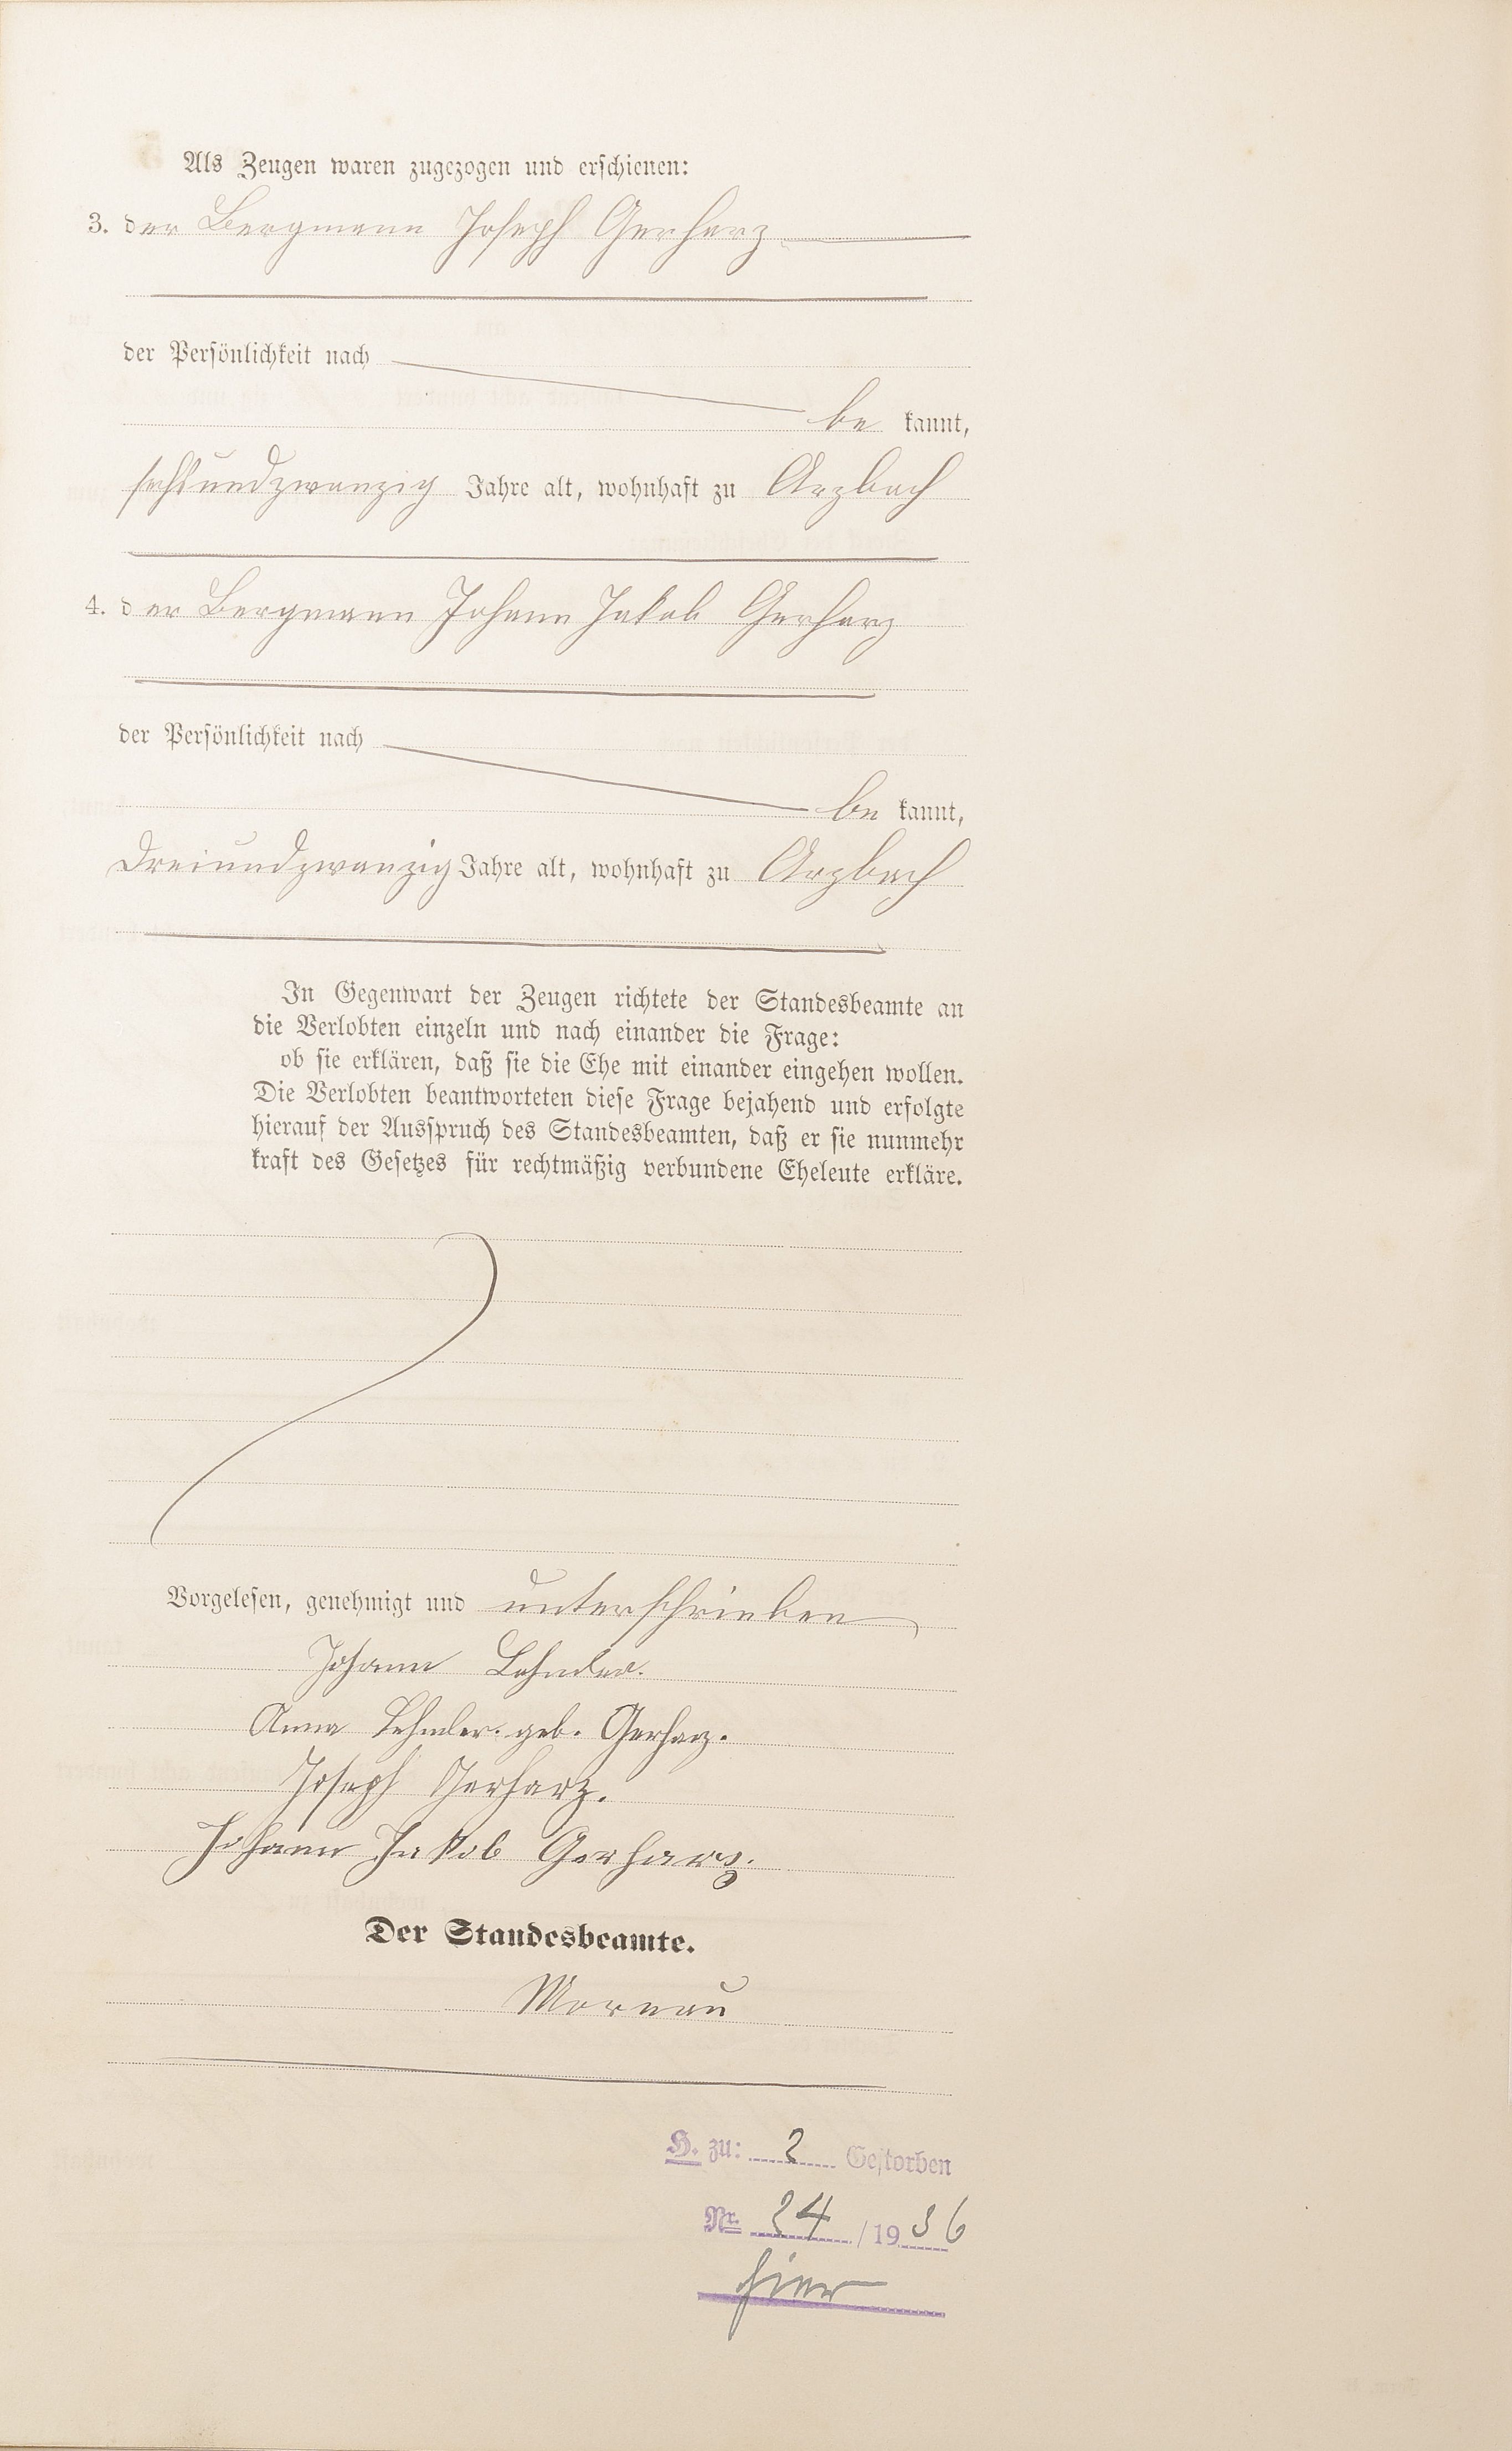 Als Zeugen waren zugezogen und erschienen:
3. der Bergmann Joseph Gerharz
der Persönlichkeit nach
be kannt,
sechsundzwanzig Jahre alt, wohnhaft zu Arzbach
4. der Bergmann Johann Jakob Gerharz
der Persönlichkeit nach
be kannt,
dreiundzwanzig Jahre alt, wohnhaft zu Arzbach
In Gegenwart der Zeugen richtete der Standesbeamte an
die Verlobten einzeln und nach einander die Frage:
ob sie erklären, daß sie die Ehe mit einander eingehen wollen.
Die Verlobten beantworteten diese Frage bejahend und erfolgte
hierauf der Ausspruch des Standesbeamten, daß er sie nunmehr
kraft des Gesetzes für rechtmäßig verbundene Eheleute erkläre.
Vorgelesen, genehmigt und unterschrieben
Johann Lehmler.
Anna Lehmler. geb. Gerharz.
Joseph Gerharz.
Johann Jakob Gerharz.
Der Standesbeamte.
Mornau
H. zu: 2 Gestorben
Nr. 24 / 1936
hier